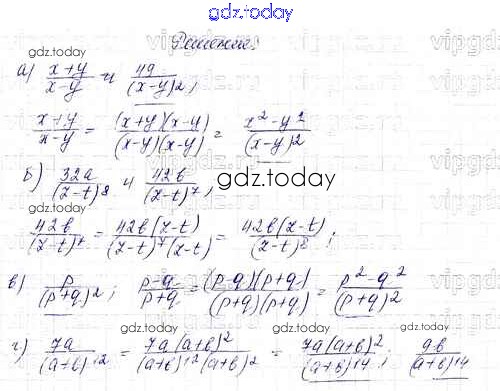 gdz.today
Решение:
gdz.today
а) \frac{x+y}{x-y} и \frac{49}{(x-y)^2};
\frac{x+y}{x-y} = \frac{(x+y)(x-y)}{(x-y)(x-y)} = \frac{x^2-y^2}{(x-y)^2}
б) \frac{32a}{(z-t)^8} и \frac{42b}{(z-t)^7}, gdz.today
\frac{42b}{(z-t)^7} = \frac{42b(z-t)}{(z-t)^7(z-t)} = \frac{42b(z-t)}{(z-t)^8};
в) \frac{p}{(p+q)^2}; \frac{p-q}{p+q} = \frac{(p-q)(p+q)}{(p+q)(p+q)} = \frac{p^2-q^2}{(p+q)^2}
gdz.today gdz.today
г) \frac{7a}{(a+b)^{12}} = \frac{7a(a+b)^2}{(a+b)^{12}(a+b)^2} = \frac{7a(a+b)^2}{(a+b)^{14}}; \frac{9b}{(a+b)^{14}}
gdz.today gdz.today